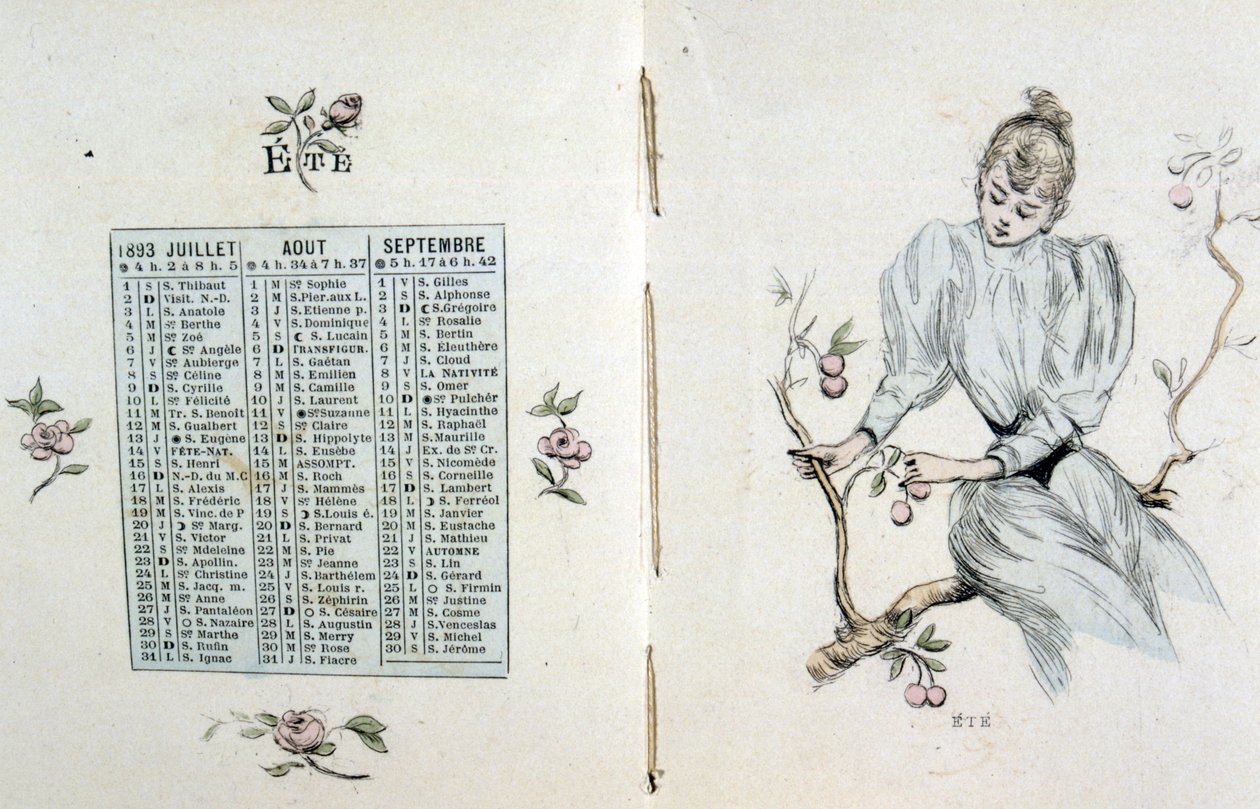 ÉTÉ
1893 JUILLET
4 h. 2 à 8 h. 5
1 S S. Thibaut
2 D Visit. N.-D.
3 L S. Anatole
4 M Sᵗᵉ Berthe
5 M Sᵗᵉ Zoé
6 J ☾ Sᵗᵉ Angèle
7 V Sᵗᵉ Aubierge
8 S Sᵗᵉ Céline
9 D S. Cyrille
10 L Sᵗᵉ Félicité
11 M Tr. S. Benoît
12 M S. Gualbert
13 J ● S. Eugène
14 V FÊTE-NAT.
15 S S. Henri
16 D N.-D. du M.C
17 L S. Alexis
18 M S. Frédéric
19 M S. Vinc. de P
20 J ☽ Sᵗᵉ Marg.
21 V S. Victor
22 S Sᵗᵉ Mdeleine
23 D S. Apollin.
24 L Sᵗᵉ Christine
25 M S. Jacq. m.
26 M Sᵗᵉ Anne
27 J S. Pantaléon
28 V ○ S. Nazaire
29 S Sᵗᵉ Marthe
30 D S. Rufin
31 L S. Ignac
AOUT
4 h. 34 à 7 h. 37
1 M Sᵗᵉ Sophie
2 M S.Pier.aux L.
3 J S. Etienne p.
4 V S. Dominique
5 S ☾ S. Lucain
6 D TRANSFIGUR.
7 L S. Gaëtan
8 M S. Emilien
9 M S. Camille
10 J S. Laurent
11 V ● Sᵗᵉ Suzanne
12 S Sᵗᵉ Claire
13 D S. Hippolyte
14 L S. Eusèbe
15 M ASSOMPT.
16 M S. Roch
17 J S. Mammès
18 V Sᵗᵉ Hélène
19 S ☽ S.Louis é.
20 D S. Bernard
21 L S. Privat
22 M S. Pie
23 M Sᵗᵉ Jeanne
24 J S. Barthélem
25 V S. Louis r.
26 S S. Zéphirin
27 D ○ S. Césaire
28 L S. Augustin
29 M S. Merry
30 M Sᵗᵉ Rose
31 J S. Fiacre
SEPTEMBRE
5 h. 17 à 6 h. 42
1 V S. Gilles
2 S S. Alphonse
3 D ☾ S. Grégoire
4 L Sᵗᵉ Rosalie
5 M S. Bertin
6 M S. Éleuthère
7 J S. Cloud
8 V LA NATIVITÉ
9 S S. Omer
10 D ● Sᵗᵉ Pulchér
11 L S. Hyacinthe
12 M S. Raphaël
13 M S. Maurille
14 J Ex. de Sᵗᵉ Cr.
15 V S. Nicomède
16 S S. Corneille
17 D S. Lambert
18 L ☽ S. Ferréol
19 M S. Janvier
20 M S. Eustache
21 J S. Mathieu
22 V AUTOMNE
23 S S. Lin
24 D S. Gérard
25 L ○ S. Firmin
26 M Sᵗᵉ Justine
27 M S. Cosme
28 J S. Venceslas
29 V S. Michel
30 S S. Jérôme
ÉTÉ